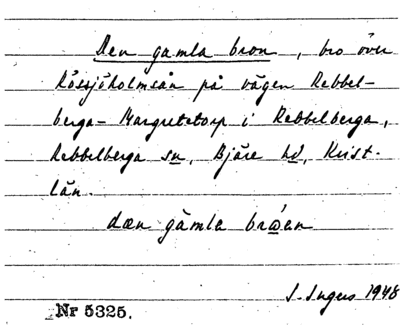 Den gamla bron, bro över
Rössjöholmsån på vägen Rebbel-
berga-Margretetorp i Rebbelberga,
Rebbelberga sn, Bjäre hd, Krist.
län.
dæn gamla broen
I. Ingers 1948
Nr 5325.